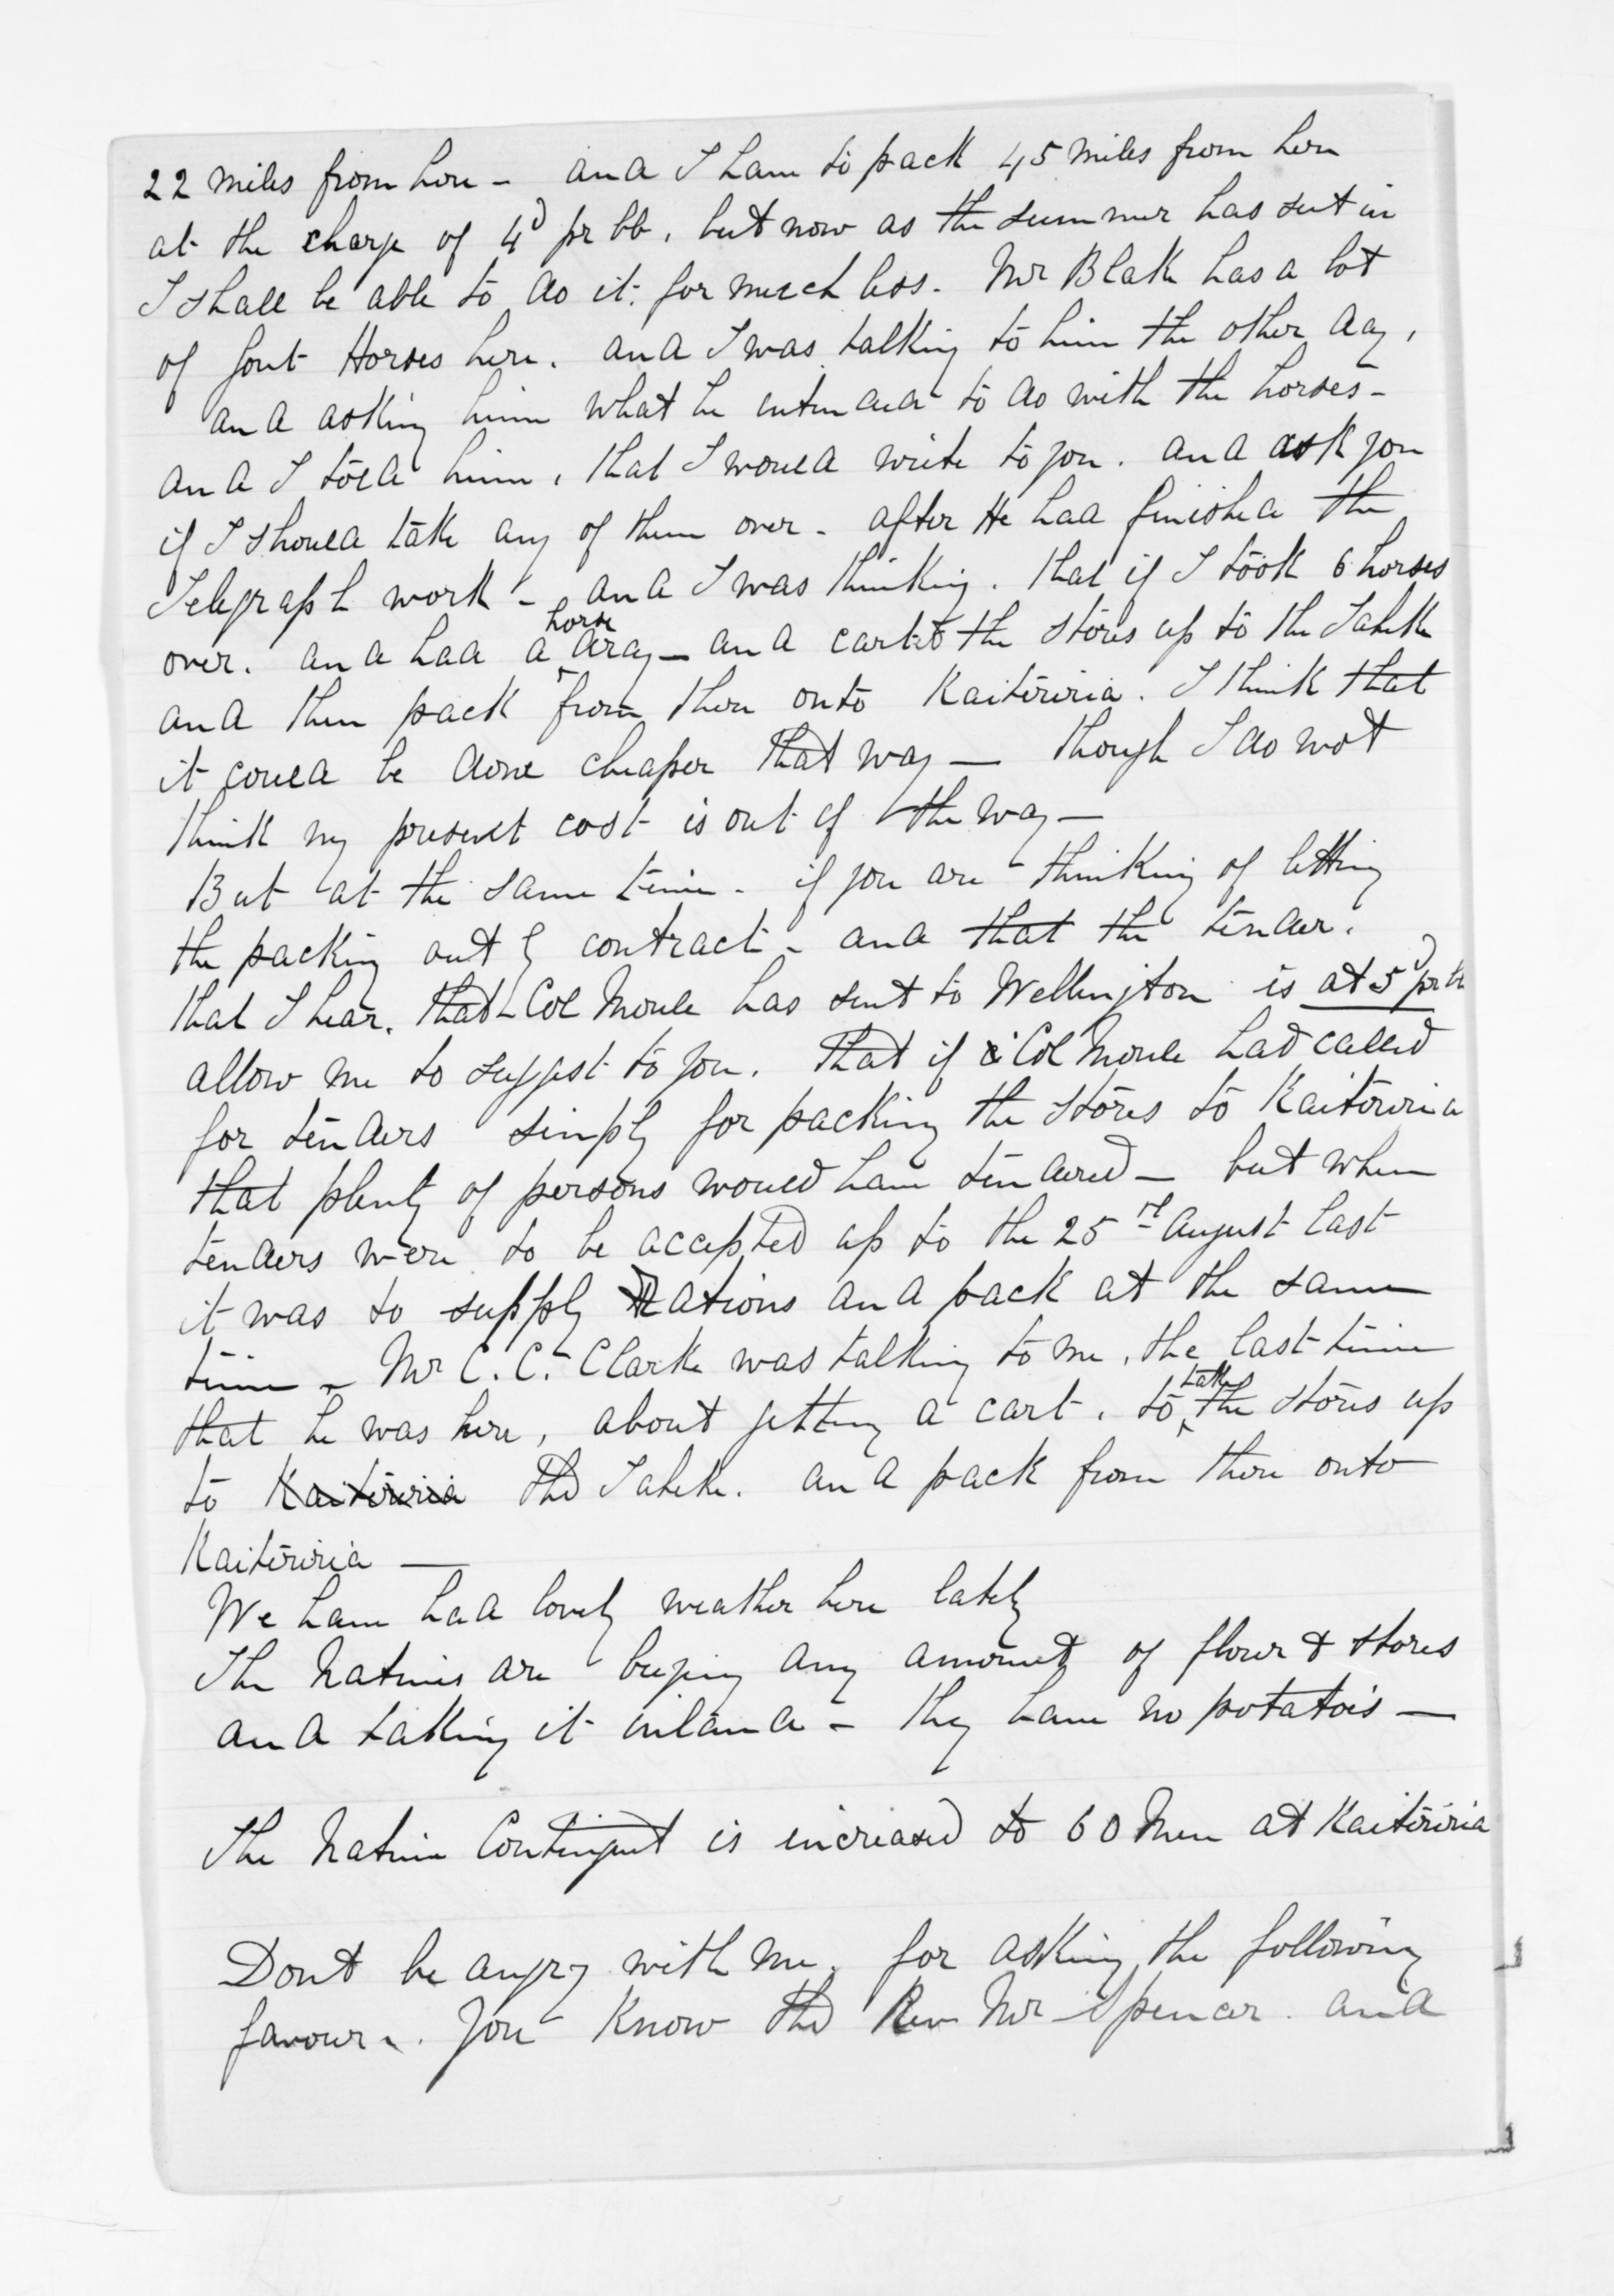 22 miles from here - and I have to pack 45 miles from here
at the charge of 4d pr lb, but now as the summer has set in
I shall be able to do it for much less. Mr Blake has a lot
of Govt Horses here. and I was talking to him the other day,
and asking him what he intended to do with the horses -
and I told him, that I would write to you. and ask you
if I should take any of them over - after He had finished the
Telegraph work - and I was thinking. that if I took 6 horses
over. and had a horse dray - and carted the stores up to the Taheke
and then pack from there onto Kaiteriria. I think that
it could be done cheaper that way — though I do not
think my present cost is out of the way —
But at the same time - if you are thinking of letting
the packing out by contract - and that the tender.
that I hear. that Col Moule has sent to Wellington is at 5d pr lb
allow me to suggest to you. That if Col Moule had called
for tenders simply for packing the stores to Kaiteriria
that plenty of persons would have tendered — but when
tenders were to be accepted up to the 25th August last
it was to supply Rations and pack at the same
time - Mr C. C. Clarke was talking to me, the last time
that he was here, about getting a cart. to take the stores up
to Kaiteriria the Taheke. and pack from there onto
Kaiteriria —
We have had lovely weather here lately
The Natives are buying any amount of flour & stores
and taking it inland - they have no potatoes —
The Native Contingent is increased to 60 Men at Kaiteriria
Dont be angry with me, for asking the following
favour -. You know the Rev Mr Spencer. and